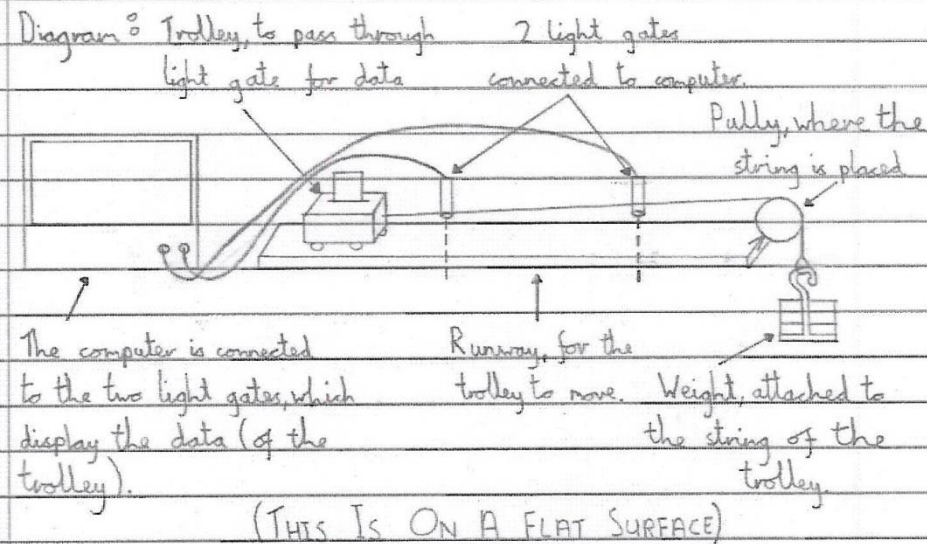 Diagram: Trolley, to pass through
light gate for data
2 light gates
connected to computer.
Pully, where the
string is placed
The computer is connected
to the two light gates, which
display the data (of the
trolley).
Runway, for the
trolley to move.
Weight, attached to
the string of the
trolley.
(THIS IS ON A FLAT SURFACE)